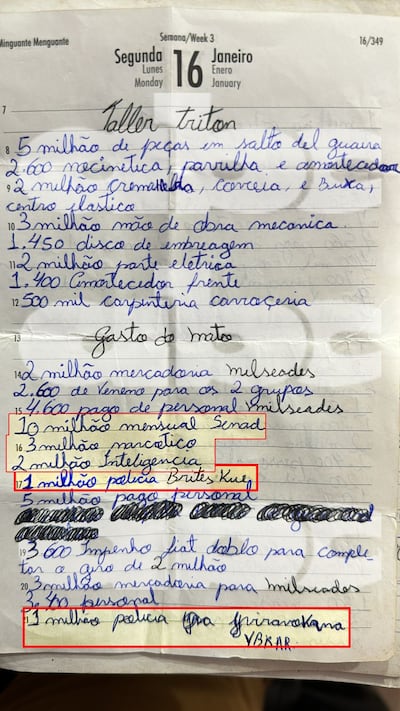 Minguante Menguante
Semana/Week 3
16/349
Segunda
Lunes
Monday
16
Janeiro
Enero
January
7
Taller triton
8 5 milhão de peças em salto del guaira
2.600 nocinetica, parrilha e amortecedora
9 2 milhão cremalelda, correia, e Buxa,
centro plastico
10 3 milhão mão de obra mecanica.
1.450 disco de embreagem
11 2 milhão parte eletrica
1.400 Amortecedor frente
12 500 mil carpinteria carroçeria
13 Gasto do mato
14 2 milhão mercadoria milseades
2.600 de veneno para os 2 grupos
15 4.600 pago de personal milseades
10 milhão mensual Senad
16 3 milhão narcotico
2 milhão Inteligencia
17 1 milhão policia Brites Kue
5 milhão pago personal
19 3 600 Impenho fiat doblo para comple-
tar o giro de 2 milhão
20 3 milhão mercadoria para milseades
personal
1 milhão policia
YBKAR.